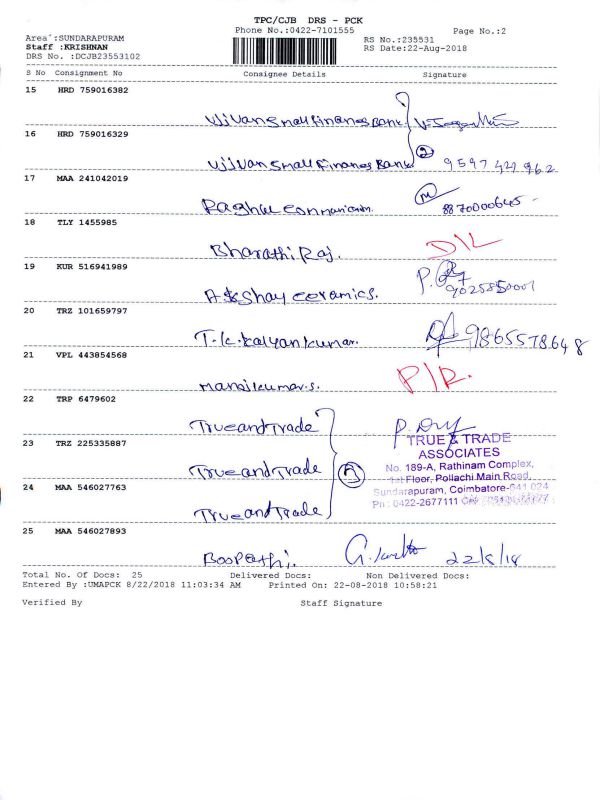 TPC/CJB DRS - PCK
Phone No.:0422-7101555
Page No.:2
Area :SUNDARAPURAM
RS No.:235531
Staff :KRISHNAN
RS Date:22-Aug-2018
DRS No. :DCJB23553102
S No Consignment No Consignee Details Signature
15 HRD 759016382
Ujjivan Small Finance Bank
16 HRD 759016329
Ujjivan Small Finance Bank 2 9597427962
17 MAA 241042019
Raghul Communication. 8870000645
18 TLY 1455985
Bharathi Raj. D/L
19 KUR 516941989
Akshay ceramics. 9025850001
20 TRZ 101659797
T.K. Kalyan kumar. 9865578648
21 VPL 443854568
Manoj kumar.s. P/R.
22 TRP 6479602
True and Trade
TRUE & TRADE
23 TRZ 225335887
ASSOCIATES
No. 189-A, Rathinam Complex,
True and Trade 3
1st Floor, Pollachi Main Road,
24 MAA 546027763
Sundarapuram, Coimbatore-641 024
Ph : 0422-2677111
True and Trade
25 MAA 546027893
Boopathi. 22/8/18
Total No. Of Docs: 25 Delivered Docs: Non Delivered Docs:
Entered By :UMAPCK 8/22/2018 11:03:34 AM Printed On: 22-08-2018 10:58:21
Verified By Staff Signature